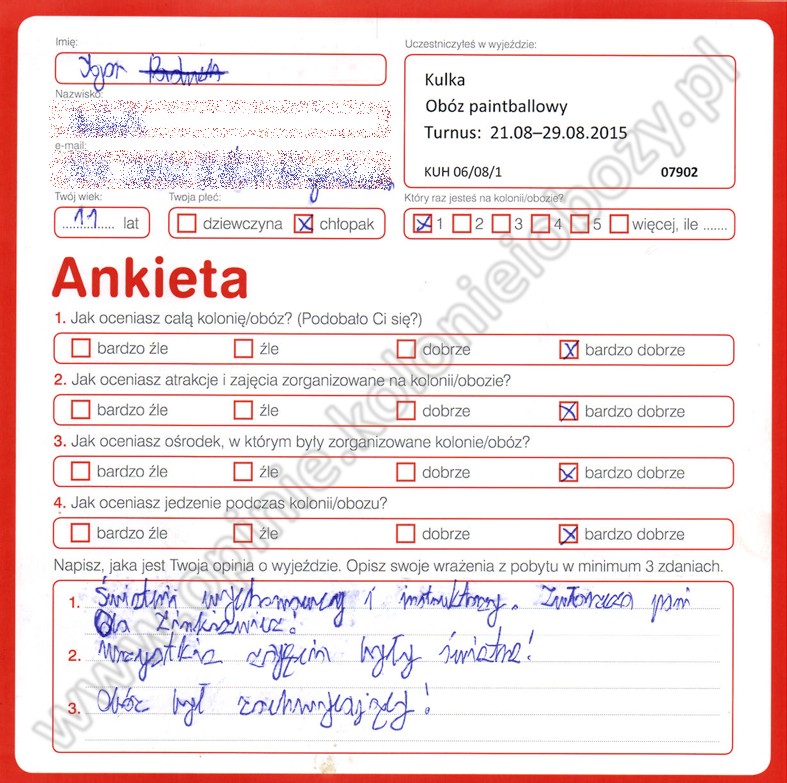 Imię:
Igor
Nazwisko:
e-mail:
Twój wiek:
11 lat
Twoja płeć:
dziewczyna x chłopak
Uczestniczyłeś w wyjeździe:
Kulka
Obóz paintballowy
Turnus: 21.08–29.08.2015
KUH 06/08/1 07902
Który raz jesteś na kolonii/obozie?
x 1 2 3 4 5 więcej, ile .......
Ankieta
1. Jak oceniasz całą kolonię/obóz? (Podobało Ci się?)
bardzo źle źle dobrze x bardzo dobrze
2. Jak oceniasz atrakcje i zajęcia zorganizowane na kolonii/obozie?
bardzo źle źle dobrze x bardzo dobrze
3. Jak oceniasz ośrodek, w którym były zorganizowane kolonie/obóz?
bardzo źle źle dobrze x bardzo dobrze
4. Jak oceniasz jedzenie podczas kolonii/obozu?
bardzo źle źle dobrze x bardzo dobrze
Napisz, jaka jest Twoja opinia o wyjeździe. Opisz swoje wrażenia z pobytu w minimum 3 zdaniach.
1. Świetni wychowawcy i instruktorzy. Zwłaszcza pani
Ola
2. Wszystkie zajęcia były świetne!
3. Obóz był zachwycający!
www.opinie.kolonieiobozy.pl